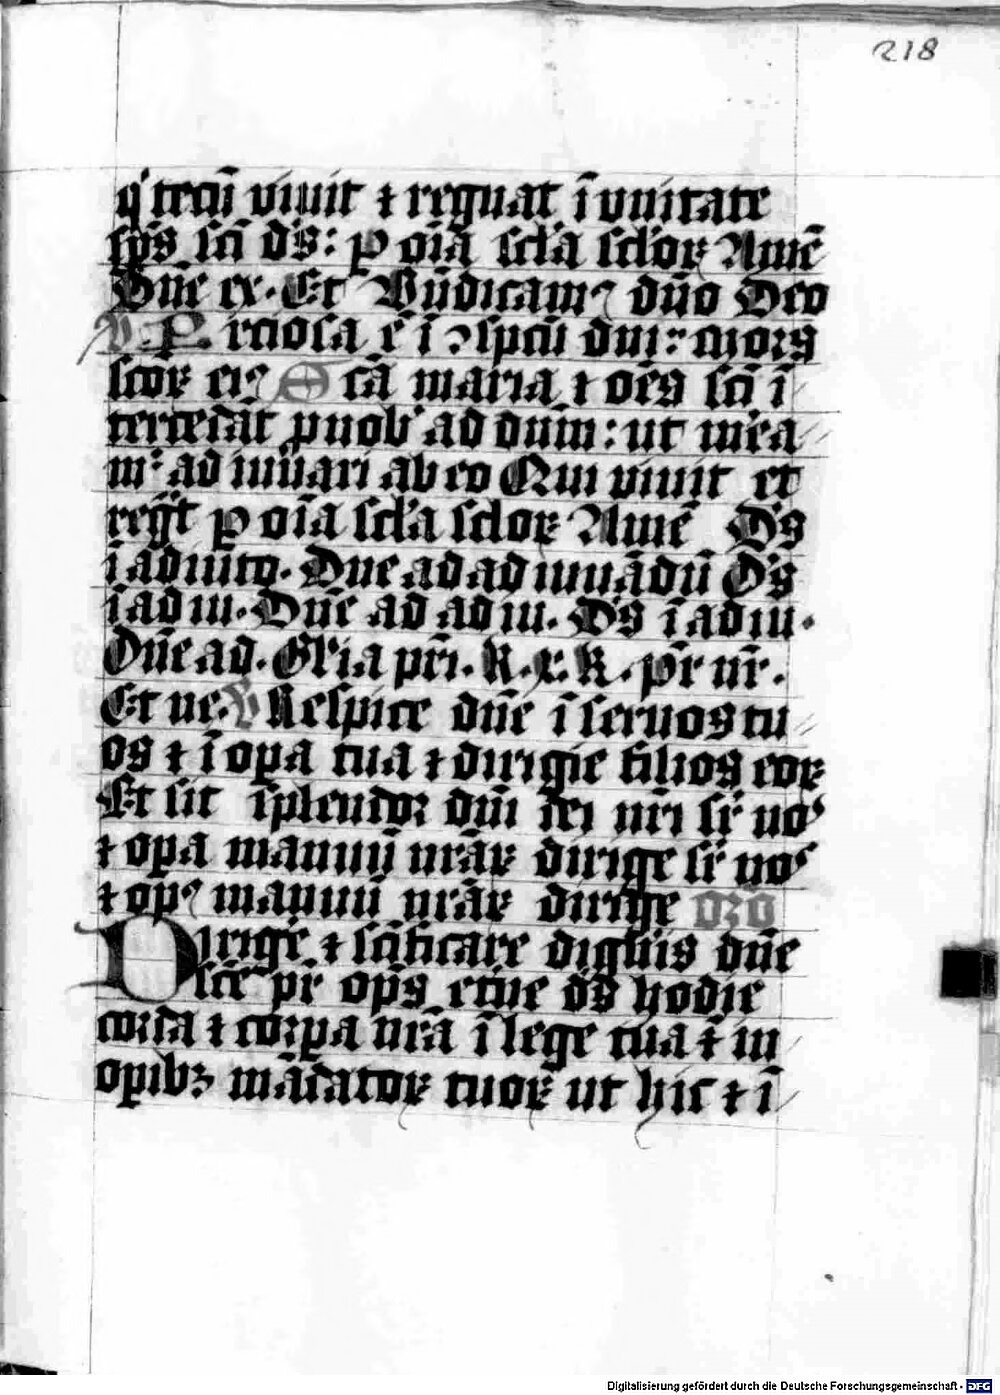 218
q' tecū viuit ⁊ regnat ī vnitate
sp̄s sc̄i d's: ꝑ oīa sc̄l'a sc̄l'oꝝ Amē
Dn̄e ex. Et Bn̄dicam9 dn̄o Deo
V. P rciosa ē ī ↄspcū dnī: mors
sc̄oꝝ ei9 S cā maria ⁊ oēs sc̄i ī
tercedāt ꝑ nob' ad dūm: ut mēa
m2 ad iuuari ab eo Qui viuit et
regāt ꝑ oīa scl'a scloꝝ Amē D's
ī adiuto. Dne ad ad iuuādū D's
ī ad iu. Dn̄e ad ad iu. D's ī ad iu.
Dn̄e ad. Gl'ia pr̄i. K. x. K. pr̄ nr̄.
Et ne. V Respice dn̄e ī seruos tu
os ⁊ ī oꝑa tua ⁊ dirigie filios eoꝝ
Et sit īplendor dn̄i dei nr̄i sr̄ no'
⁊ oꝑa manuū nr̄aꝝ dirige sr̄ nos
⁊ op9 manuū nr̄aꝝ dirige oro
Dirige ⁊ sc̄ificare dignīs dn̄e
sc̄e pr̄ op̄s etn̄e d's hodie
corda ⁊ corꝑa nr̄a ī lege tua ⁊ in
oꝑibꝫ mādatoꝝ tuoꝝ ut hic ⁊ ī
Digitalisierung gefördert durch die Deutsche Forschungsgemeinschaft - DFG